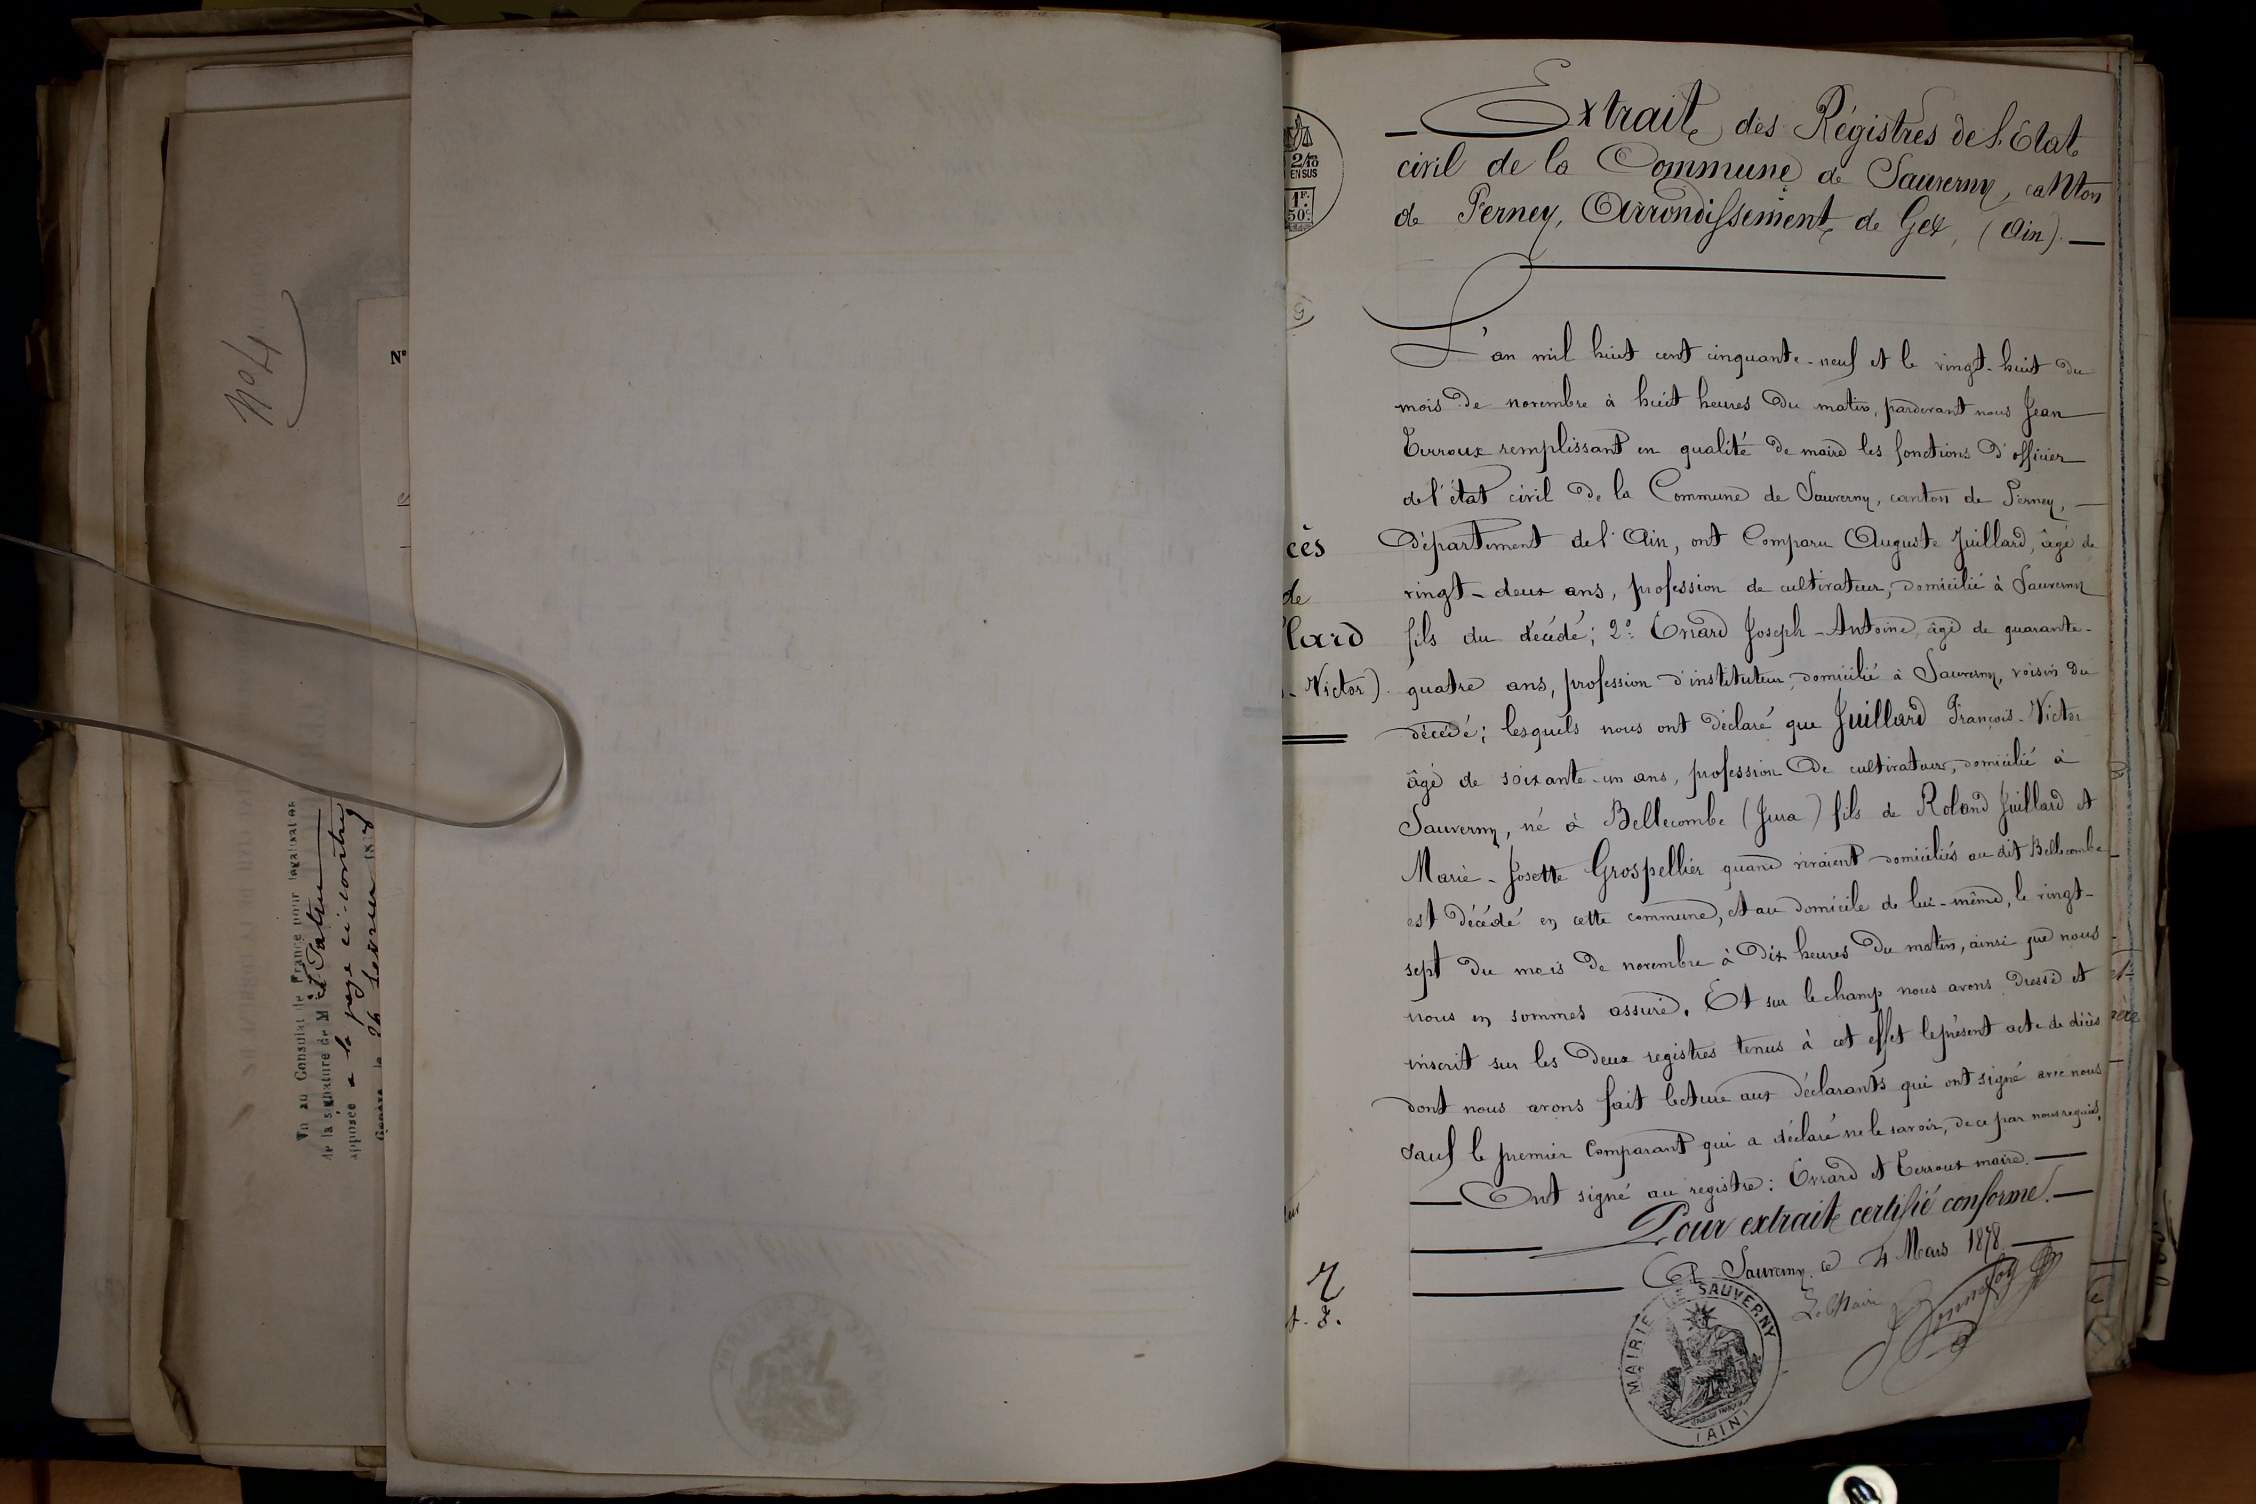 No 4
N°
Vu au Consulat de France pour légalisation
de la signature de M
apposée à la page ci-contre
2/10
EN SUS
1F.
50c.
Extrait des Régistres de l'Etat
civil de la Commune de Sauverny, canton
de Ferney, Arrondissement de Gex, (Ain).
L'an mil huit cent cinquante-neuf et le vingt-huit du
mois de novembre à huit heures du matin, pardevant nous Jean
Terroux remplissant en qualité de maire les fonctions d'officier
de l'état civil de la Commune de Sauverny, canton de Ferney,
Département de l'Ain, ont Comparu Auguste Juillard, âgé de
vingt-deux ans, profession de cultivateur, domicilié à Sauverny
fils du décédé; 2º: Joseph-Antoine, âgé de quarante-
quatre ans, profession d'instituteur, domicilié à Sauverny, voisin du
décédé; lesquels nous ont déclaré que Juillard François-Victor
âgé de soixante-un ans, profession de cultivateur, domicilié à
Sauverny, né à Bellecombe (Jura) fils de Roland Juillard et
Marie-Josette Grospellier quand vivaient domiciliés au dit Bellecombe
est décédé en cette commune, et au domicile de lui-même, le vingt-
sept du mois de novembre à dix heures du matin, ainsi que nous
nous en sommes assuré. Et sur le champ nous avons dressé et
inscrit sur les deux registres tenus à cet effet le présent acte de décès
dont nous avons fait lecture aux déclarants qui ont signé avec nous
sauf le premier Comparant qui a déclaré ne le savoir, de ce par nous requis,
Ont signé au registre: et Terroux maire.
Pour extrait certifié conforme.
A Sauverny, ce 4 Mars 1878.
Le Maire
cès
de
lard
- Victor).
MAIRIE DE SAUVERNY
(AIN)